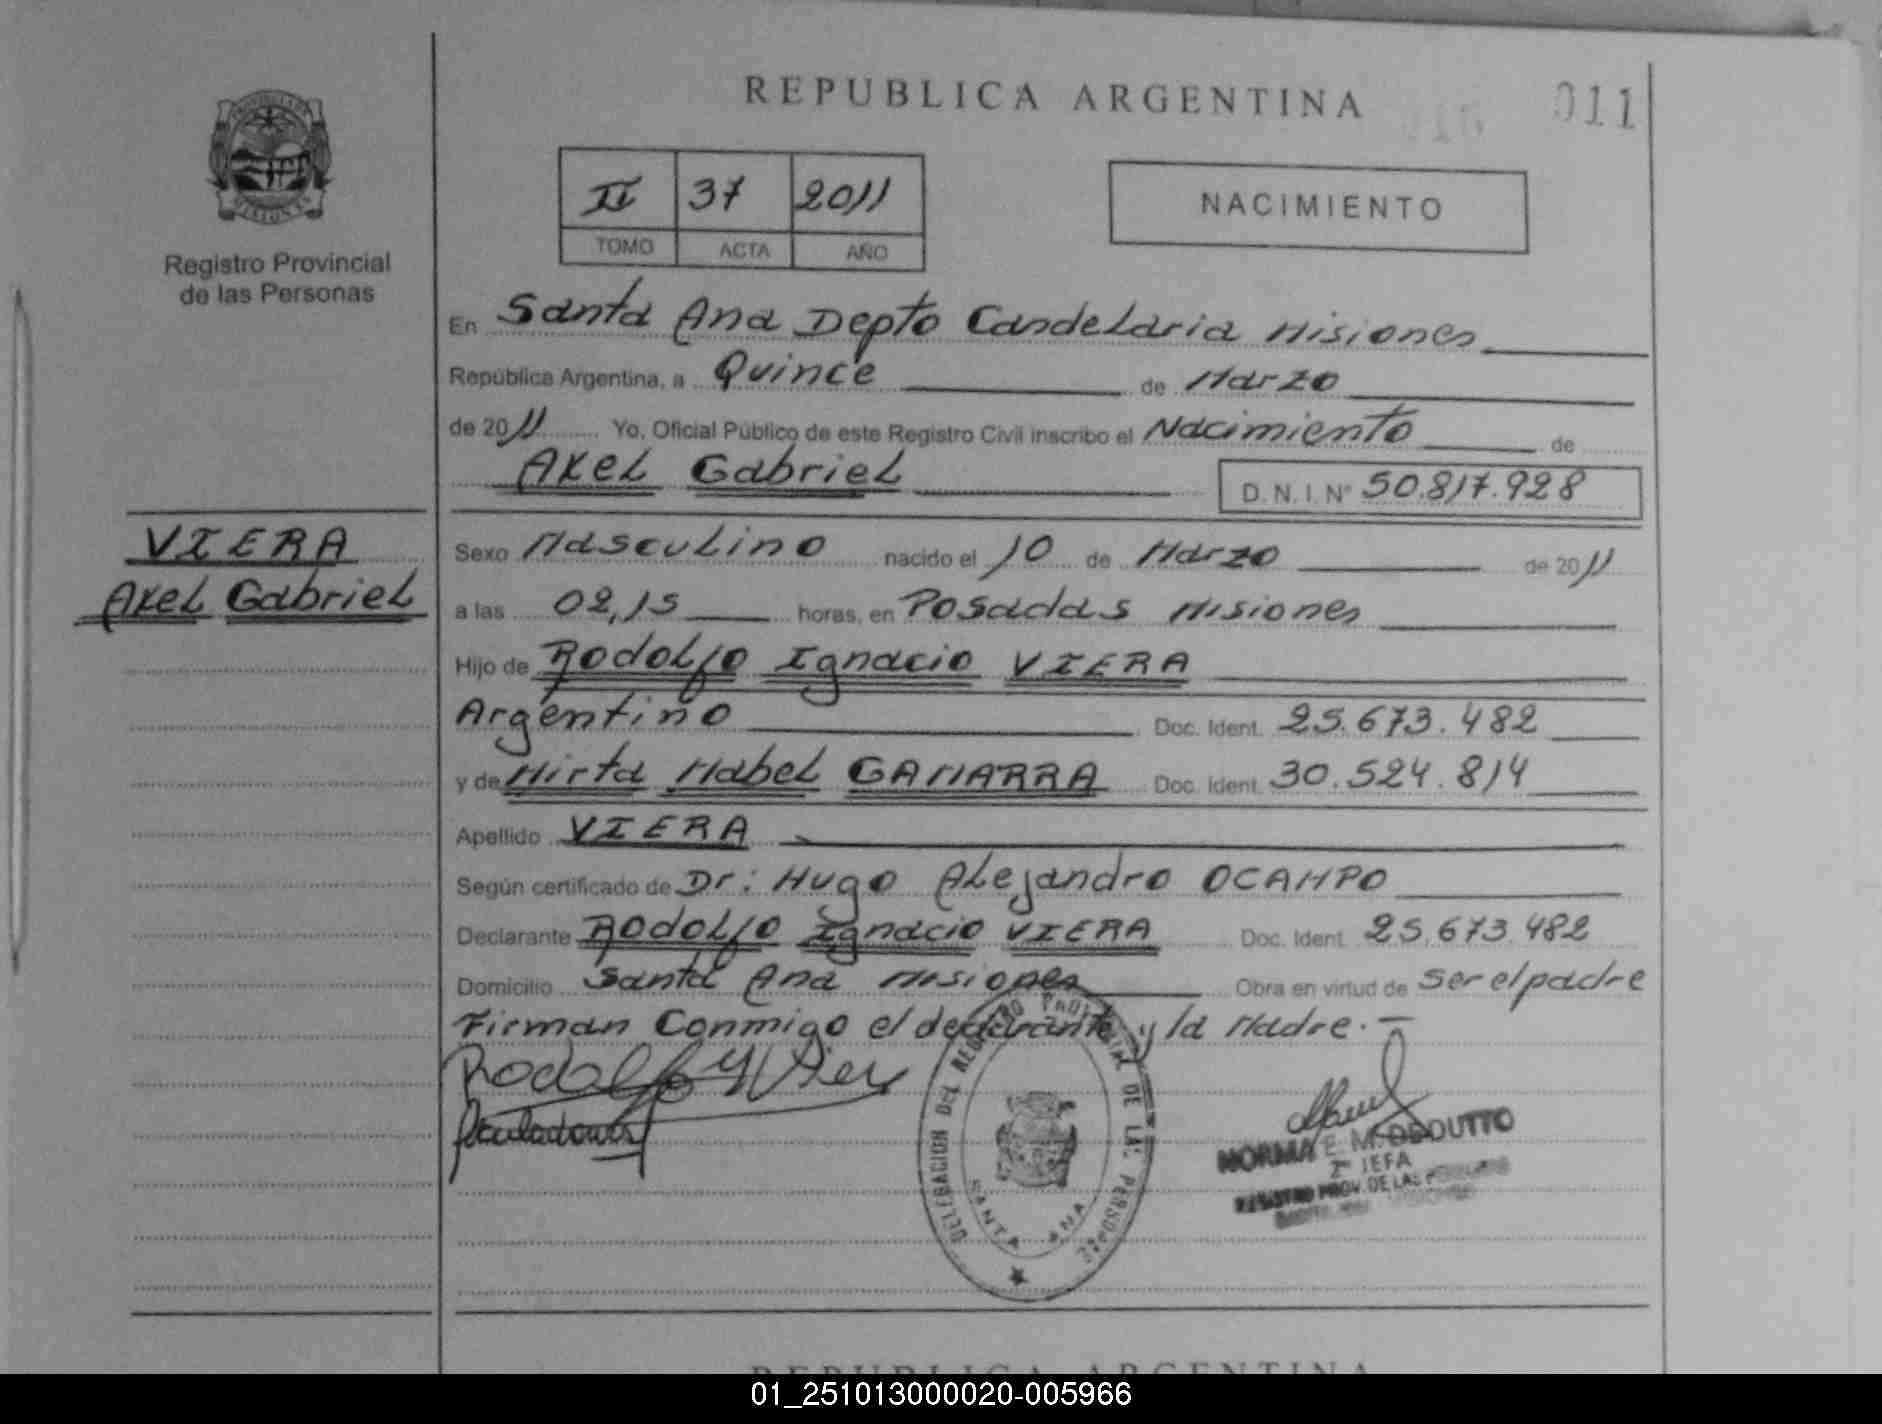 REPUBLICA ARGENTINA
011
PROVINCIA DE
MISIONES
Registro Provincial
de las Personas
II 37 2011
TOMO ACTA AÑO
NACIMIENTO
En Santa Ana Depto Candelaria Misiones
República Argentina, a Quince de Marzo
de 2011 Yo, Oficial Público de este Registro Civil inscribo el Nacimiento de
Axel Gabriel D. N. I. Nº 50.817.928
VIERA
Axel Gabriel
Sexo Masculino nacido el 10 de Marzo de 2011
a las 02,15 horas, en Posadas Misiones
Hijo de Rodolfo Ignacio VIERA
Argentino Doc. Ident. 25.673.482
y de Mirta Mabel GAMARRA Doc. Ident. 30.524.814
Apellido VIERA
Según certificado de Dr: Hugo Alejandro OCAMPO
Declarante Rodolfo Ignacio VIERA Doc. Ident. 25.673.482
Domicilio Santa Ana Misiones Obra en virtud de Ser el padre
Firman Conmigo el declarante y la Madre.-
Rodolfo
DELEGACION DEL REGISTRO PROVINCIAL DE LAS PERSONAS
SANTA ANA
NORMA E. M.
JEFA
REGISTRO PROV. DE LAS PERSONAS
REPUBLICA ARGENTINA
01_251013000020-005966